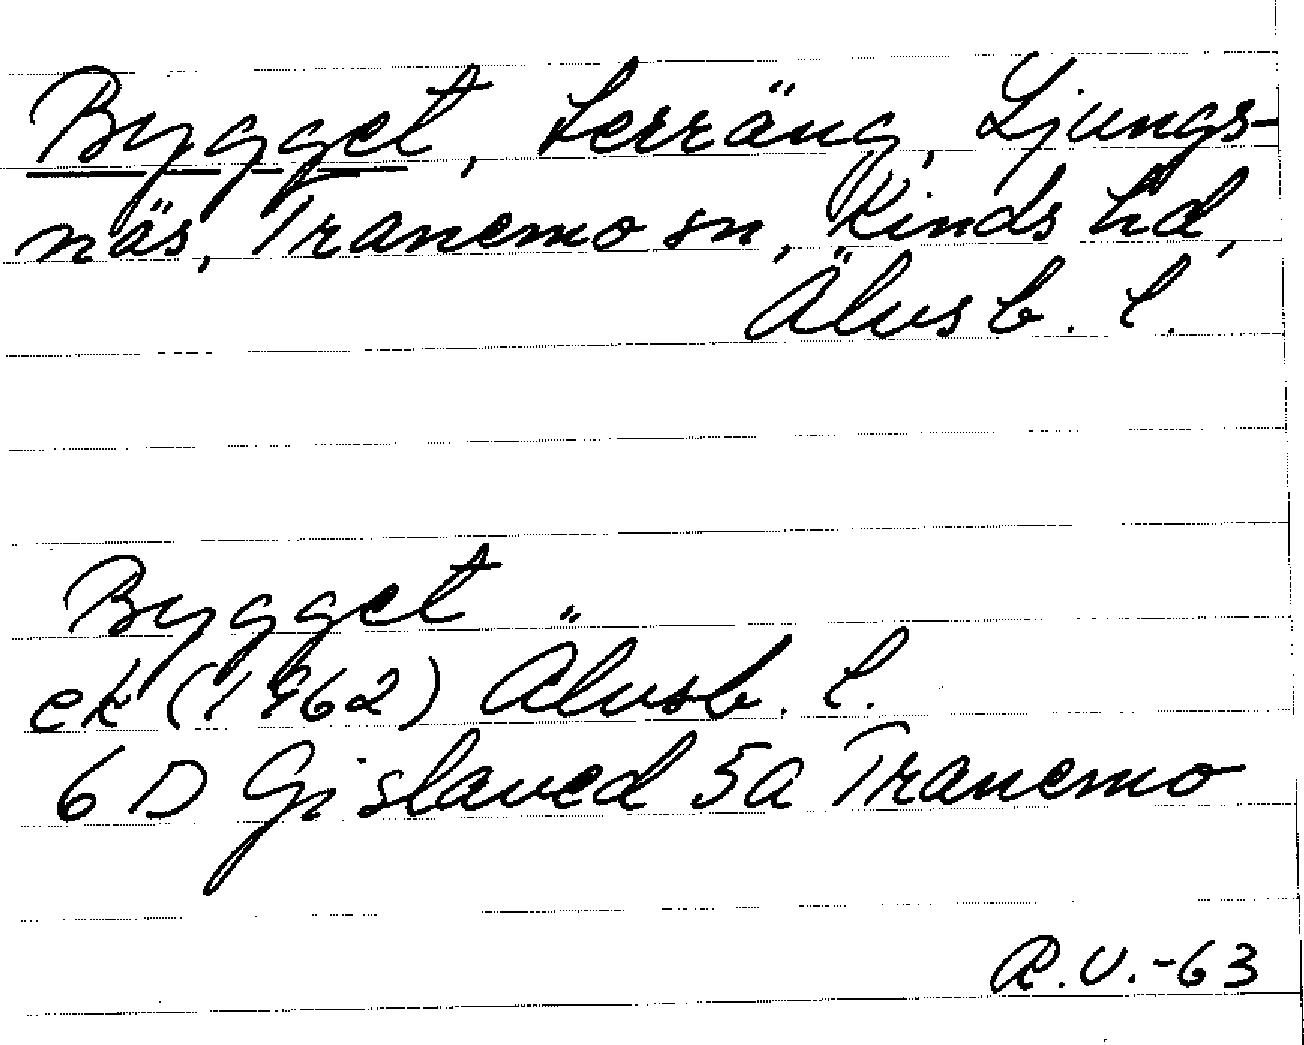 Bygget, terräng, Ljungs-
näs, Tranemo sn, Kinds hd,
Älvsb. l.
Bygget
ek (1962) Älvsb. l.
6 D Gislaved 5a Tranemo
R.V.-63